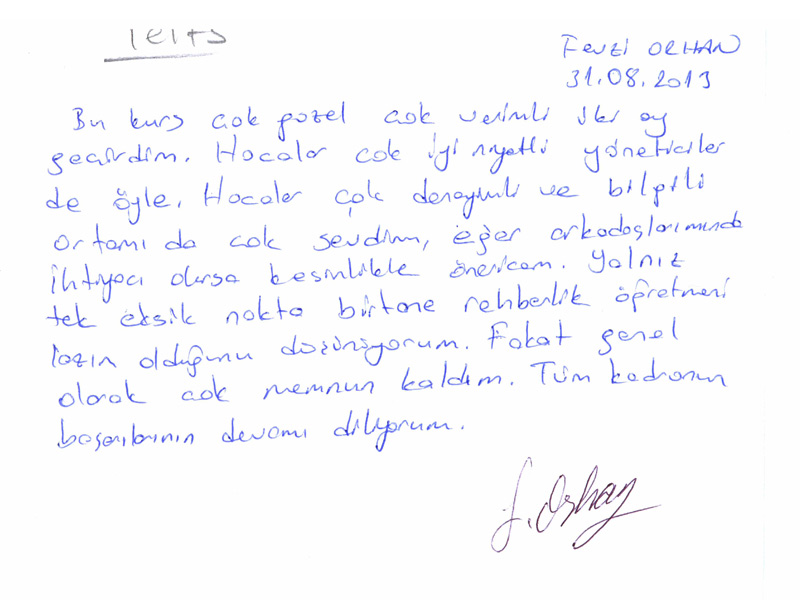 IELTS
Fevzi ORHAN
31.08.2013
Bu kurs çok güzel çok verimli iki ay
geçirdim. Hocalar çok iyi niyetli yöneticiler
de öyle. Hocaler çok deneyimli ve bilgili
ortamı da çok sevdim, eğer arkadaşlarımında
ihtiyacı olursa kesinlikle önericem. Yalnız
tek eksik nokta birtane rehberlik öğretmeni
lazın olduğunu düşünüyorum. Fakat genel
olarak çok memnun kaldım. Tüm kadronun
başarılarının devamı diliyorum.
f.Orhan